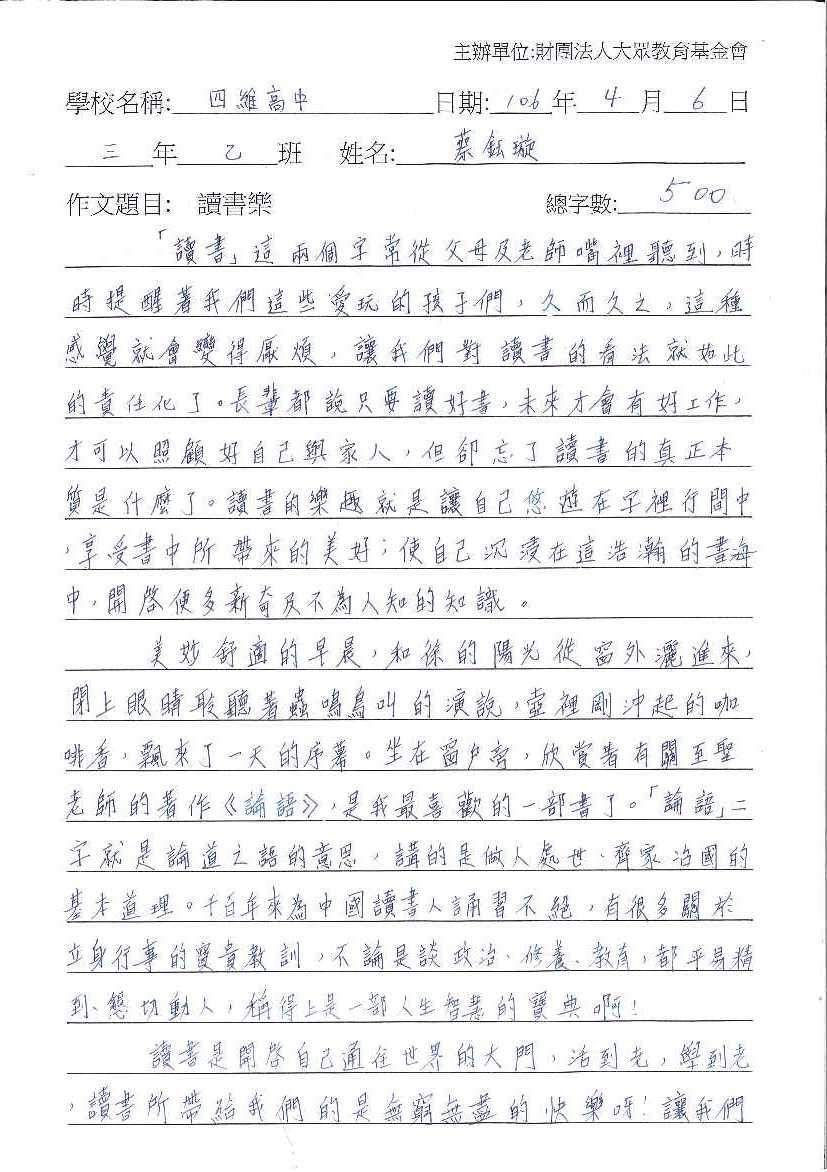 主辦單位:財團法人大眾教育基金會
學校名稱: 四維高中 日期: 106 年 4 月 6 日
三 年 乙 班 姓名: 蔡鈺璇
作文題目: 讀書樂 總字數: 500
「讀書」這兩個字常從父母及老師嘴裡聽到,時
時提醒著我們這些愛玩的孩子們,久而久之,這種
感覺就會變得厭煩,讓我們對讀書的看法就如此
的責任化了。長輩都說只要讀好書,未來才會有好工作,
才可以照顧好自己與家人,但卻忘了讀書的真正本
質是什麼了。讀書的樂趣就是讓自己悠遊在字裡行間中
,享受書中所帶來的美好;使自己沉浸在這浩瀚的書海
中,開啓便多新奇及不為人知的知識。
美妙舒適的早晨,和徐的陽光從窗外灑進來,
閉上眼睛聆聽著蟲鳴鳥叫的演說,壺裡剛沖起的咖
啡香,飄來了一天的序幕。坐在窗戶旁,欣賞著有關至聖
老師的著作《論語》,是我最喜歡的一部書了。「論語」二
字就是論道之語的意思,講的是做人處世、齊家治國的
基本道理。千百年來為中國讀書人誦習不絕,有很多關於
立身行事的寶貴教訓,不論是談政治、修養、教育,都平易精
到、懇切動人,稱得上是一部人生智慧的寶典啊!
讀書是開啓自己通往世界的大門,活到老,學到老
,讀書所帶給我們的是無窮無盡的快樂呀!讓我們